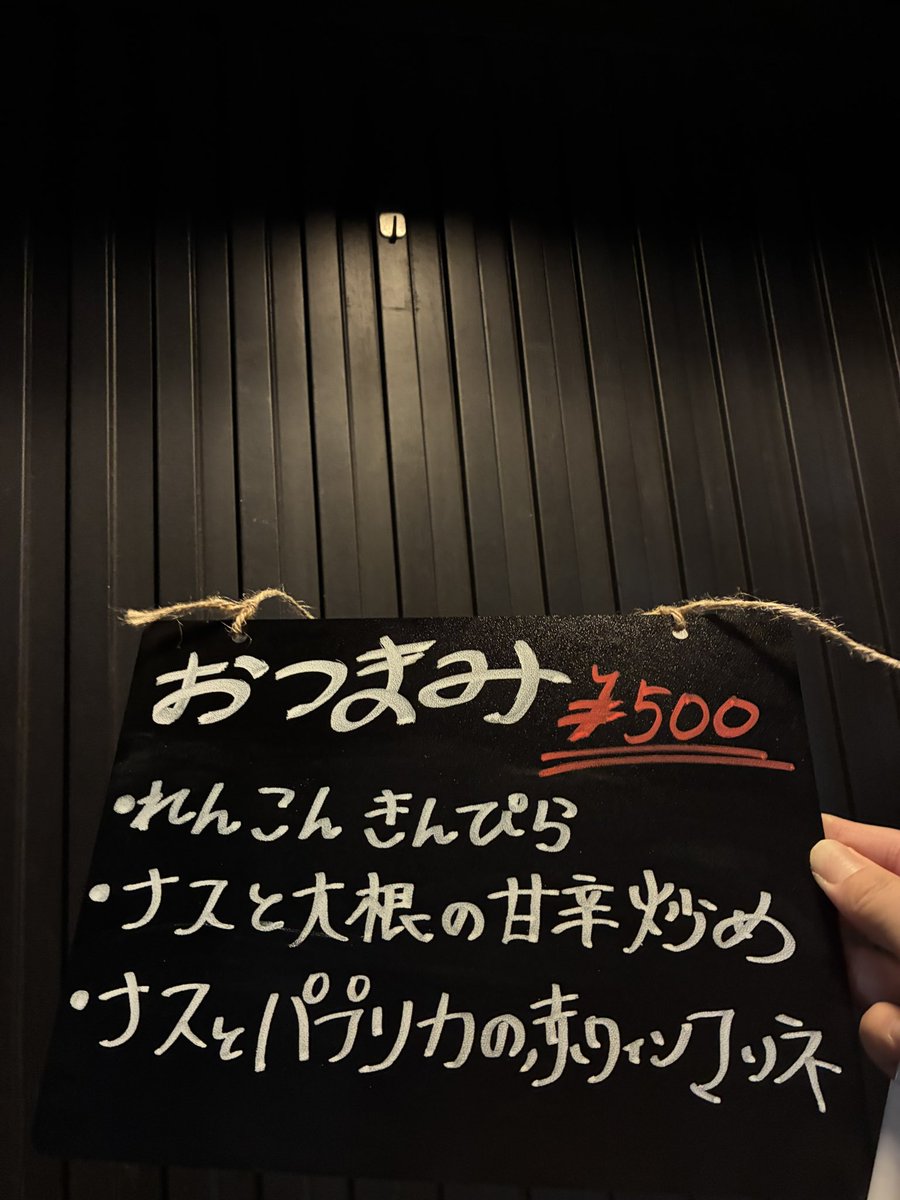 おつまみ ¥500
・れんこんきんぴら
・ナスと大根の甘辛炒め
・ナスとパプリカの赤ワインマリネ